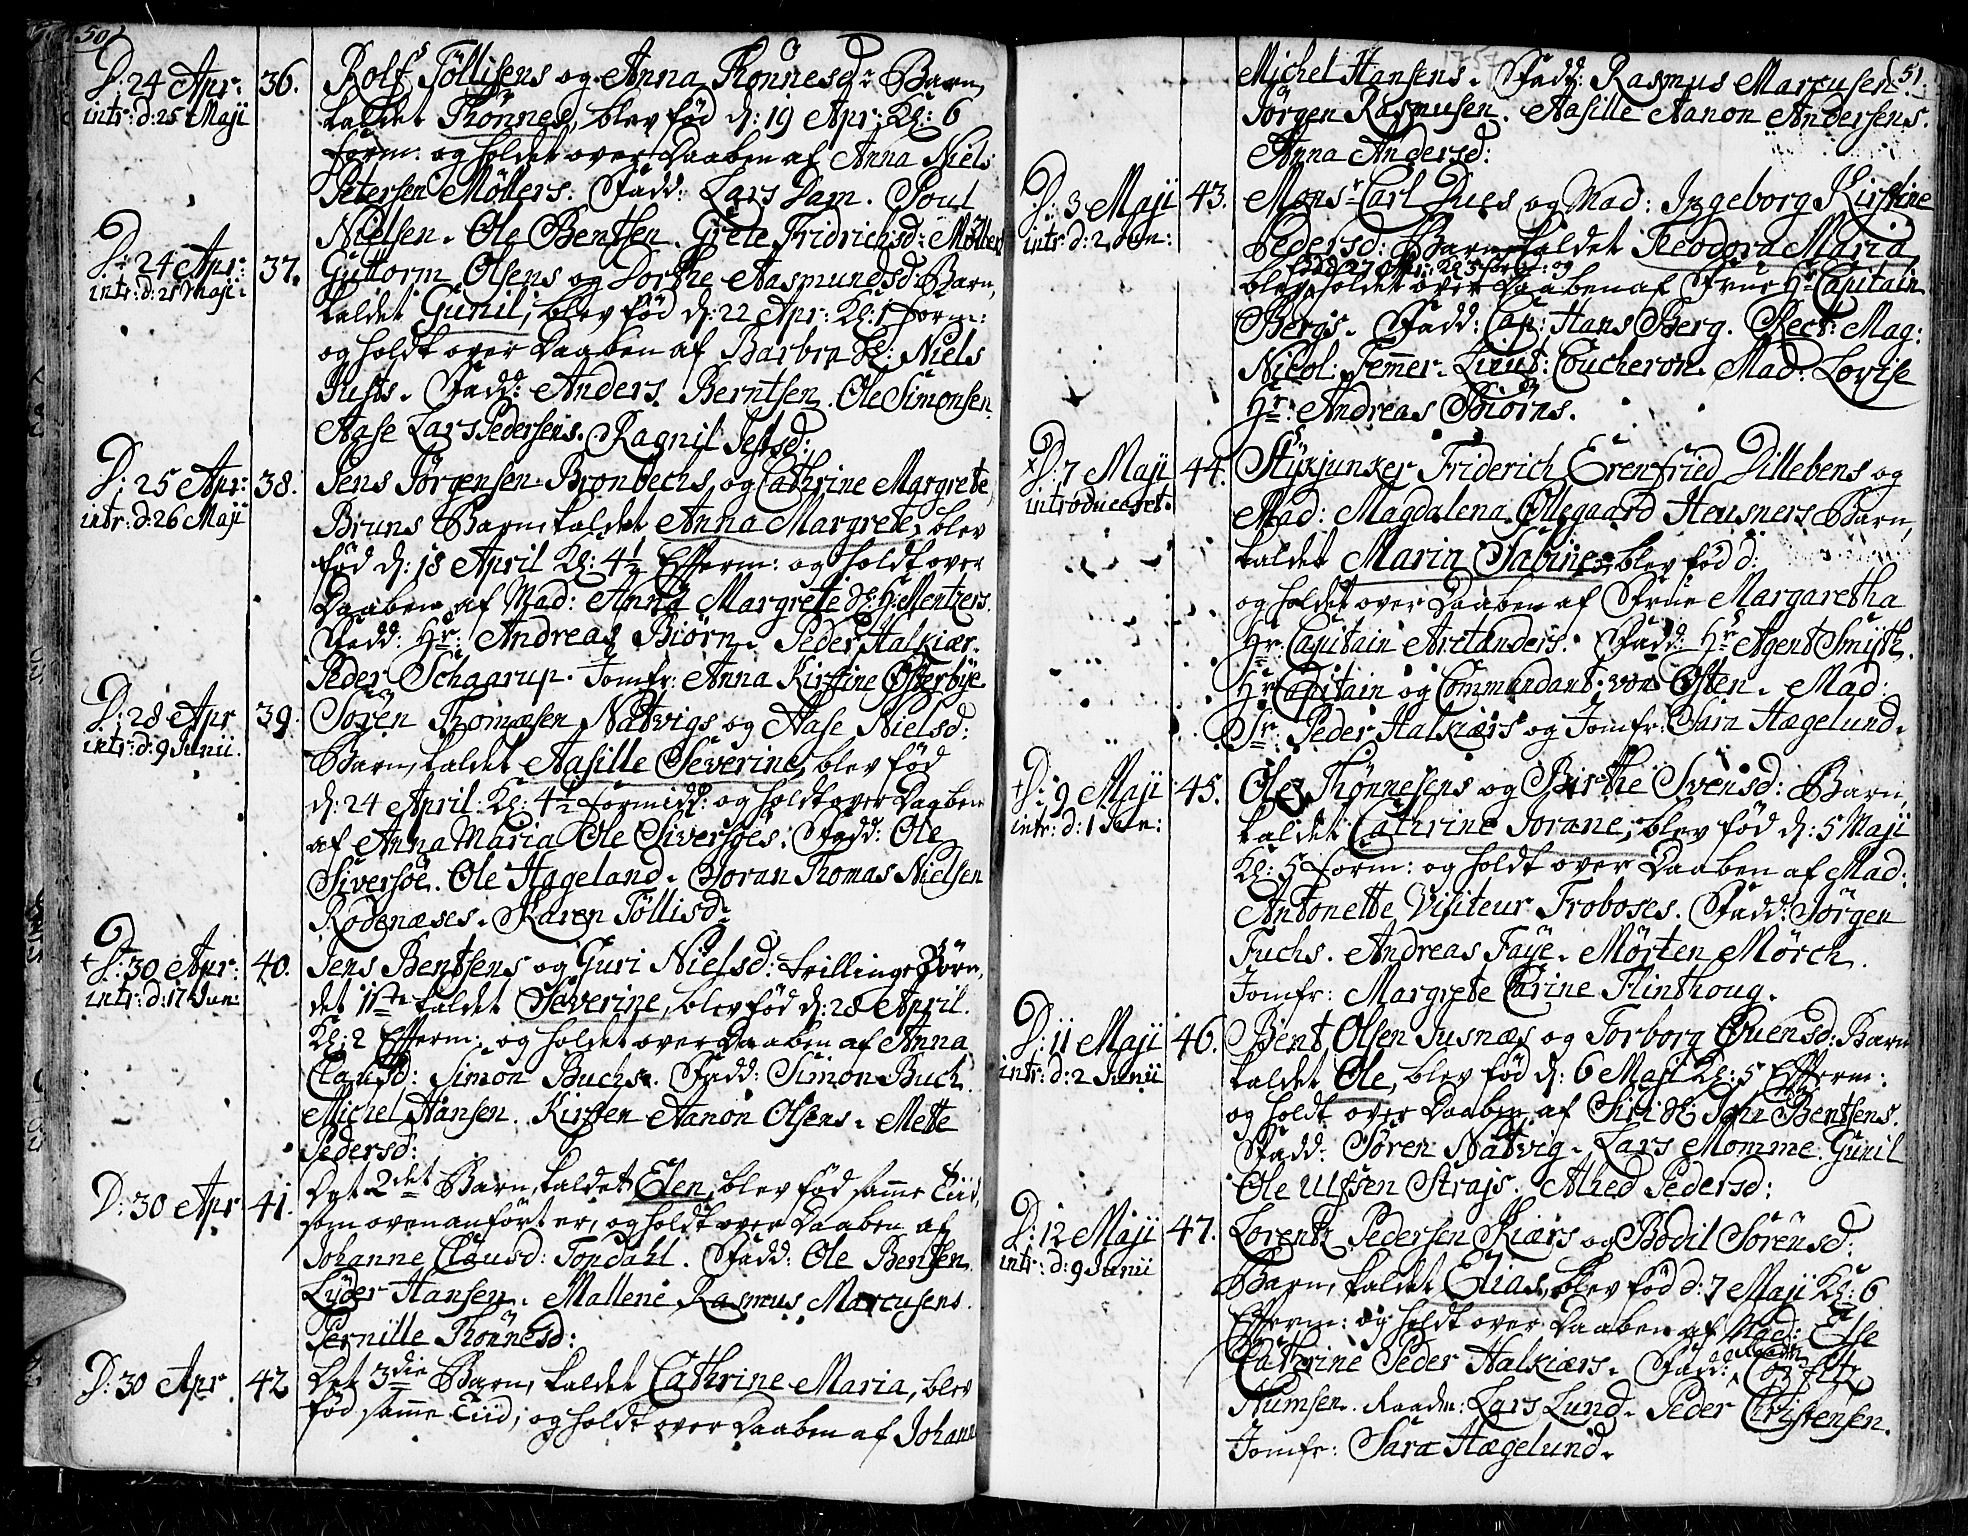 50)
D: 24 Apr: 36. Rolf Töllisens og Anna Thönnesd: Barn,
intr: d: 25 Maji kaldet Thönnes, blev fød d: 19 Apr: Kl: 6
form: og holdet over Daaben af Anna Niels
Petersen Möllers. Fadd: Lars Dam. Poul
Nielsen. Ole Bentsen. Grete Fridrichsd: Möller
D: 24 Apr: 37. Guttorm Olsens og Dorthe Aasmundsd: Barn,
intr: d: 25 Maji. kaldet Gunil, blev fød d: 22 Apr: Kl: 1 form:
og holdt over Daaben af Barbra Sl: Niels
Justs. Fadd: Anders Berntsen. Ole Simonsen.
Aase Lars Pedersens. Ragnil Jensd:
D: 25 Apr: 38. Jens Jörgensen Bronbechs, og Cathrine Margrete
intr: d: 26 Maji Bruns Barn, kaldet Anna Margrete, blev
fød d: 18 April Kl: 4½ Efterm: og holdt over
Daaben af Mad: Anna Margrete Sl: H: Mentzers.
Fadd: Hr: Andreas Biörn. Peder Halkiær.
Peder Schaarup. Jomfr: Anna Kirstine Österbÿe
D: 28 Apr 39. Sören Thomæsen Natvigs og Aase Nielsd:
intr: d: 9 Junii. Barn, kaldet Aasille Severine, blev fød
d: 24 April: Kl: 4½ formidd: og holdt over Daaben
af Anna Maria Ole Siversöes. Fadd: Ole
Siversöe. Ole Hageland. Joran Thomas Nielsen
Rodenæses. Karen Töllisd:
+ D: 30 Apr: 40. Jens Bentsens og Guri Nielsd: trillinge Börn,
intr: d: 17 Jun: det 1ste kaldet Severine, blev fød d: 28 April.
Kl: 2 Efterm: og holdet over Daaben af Anna
Clausd: Simon Buchs. Fadd: Simon Buch.
Michel Hansen. Kirsten Aanon Olsens. Mette
Pedersd:
D: 30 Apr 41. Det 2det Barn, kaldet Elen, blev fød samme Tiid,
som ovenanført er, og holdt over Daaben af
Johanne Clausd: Topdahl. Fadd: Ole Bentsen.
Lÿder Hansen. Mallene Rasmus Marcusens.
Pernille Thönnesd:
D: 30 Apr 42 Det 3die Barn, kaldet Cathrine Maria, blev
fød samme Tiid, og holdt over Daaben af Johan
1757
(51.
Michel Hansens. Fadd: Rasmus Marcusen.
Jörgen Rasmusen. Aasille Aanon Andersens.
Anna Andersd:
D: 3 Maji 43. Monsr Carl Dues og Mad: Ingeborg Kirstine
intr: d: 2 Jun: Pedersd: Barn kaldet Theodora Maria,
fød d: 27 Apr: Kl 5
blev holdet over Daaben af Frue Hr Capitain
Bergs. Fadd: Cap: Hans Berg. Rect: Mag:
Nicol: Femmer. Lieut: Coucheron. Mad: Lovise
Hr: Andreas Biörns.
× D: 7 Maji 44. Stÿkjunker Friderich Erenfried Dillebens og
introduceret. Mad: Magdalena Ollegaard Heusners Barn,
kaldet Maria Sabine, blev fød d:
og holdet over Daaben af Frue Margaretha
Hr: Capitain Aretanders. Fadd: Hr Agent Smith.
Hr Capitain og Commandant von Osten. Mad:
Sr: Peder Halkiærs og Jomfr: Sara Hægelund.
+ D: 9 Maji 45. Ole Thönnesens og Birthe Svensd: Barn,
intr: d: 1 Jun: kaldet Cathrine Jorane, blev fød d: 5 Maji
Kl: 5 form: og holdt over Daaben af Mad:
Antonette Visiteur Froboses. Fadd: Jörgen
Fuchs. Andreas Faÿe. Mörten Mörch.
Jomfr: Margrete Carine Flinthoug.
D: 11 Maji 46. Bent Olsen Jusnæs og Torborg Ouensd: Barn
intr: d: 2 Junii kaldet Ole, blev fød d: 6 Maji Kl: 5 Efterm:
og holdt over Daaben af Siri Sl John Bentsens.
Fadd: Sören Natvig. Lars Momme. Gunil
Ole Ulfsen Strajs. Alhed Pedersd:
D: 12 Maji 47. Lorentz Pedersen Kiærs og Bodil Sörensd:
intr: d: 9 Junii Barn, kaldet Elias, blev fød d: 7 Maji Kl: 6
Efterm: og holdt over Daaben af Mad: Else
Cathrine Peder Halkiærs. Fadd:
Numsen. Raadm: Lars Lund. Peder Christensen.
Jomfr: Sara Hægelund.